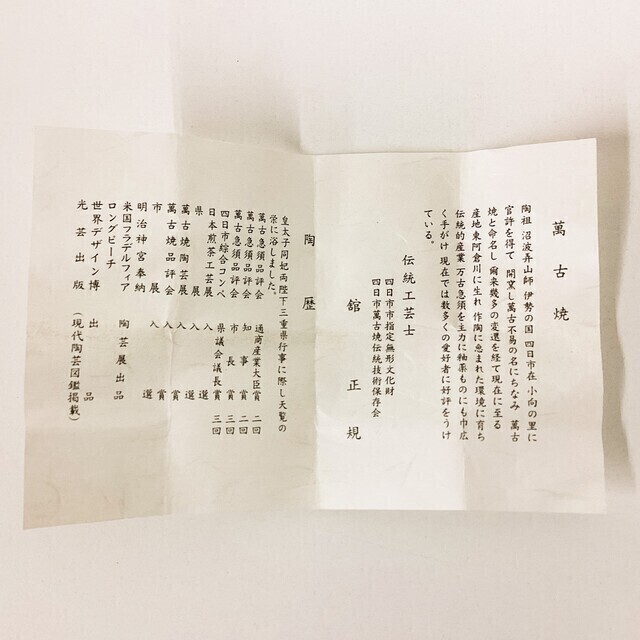 萬古焼
陶祖 沼波弄山師 伊勢の国 四日市在 小向の里に
官許を得て 開窯し萬古不易の名にちなみ 萬古
焼と命名し 爾来幾多の変遷を経て現在に至る
産地東阿倉川に生れ 作陶に恵まれた環境に育ち
伝統的産業 万古急須を主力に釉薬ものにも巾広
く手がけ 現在では数多くの愛好者に好評をうけ
ている。
伝統工芸士
四日市市指定無形文化財
四日市萬古焼伝統技術保存会
舘 正規
陶歴
皇太子同妃両陛下三重県行事に際し天覧の
栄に浴しました。
萬古急須品評会 通商産業大臣賞 二回
萬古急須品評会 知事賞 二回
萬古急須品評会 市長賞 三回
四日市綜合コンペ 県議会議長賞 三回
日本煎茶工芸展 入選
県展 入選
萬古焼陶芸展 入賞
萬古焼品評会 入賞
市展 入選
明治神宮奉納
米国フラデルフィア 陶芸展出品
ロングビーチ
世界デザイン博 出品
光芸出版 (現代陶芸図鑑掲載)